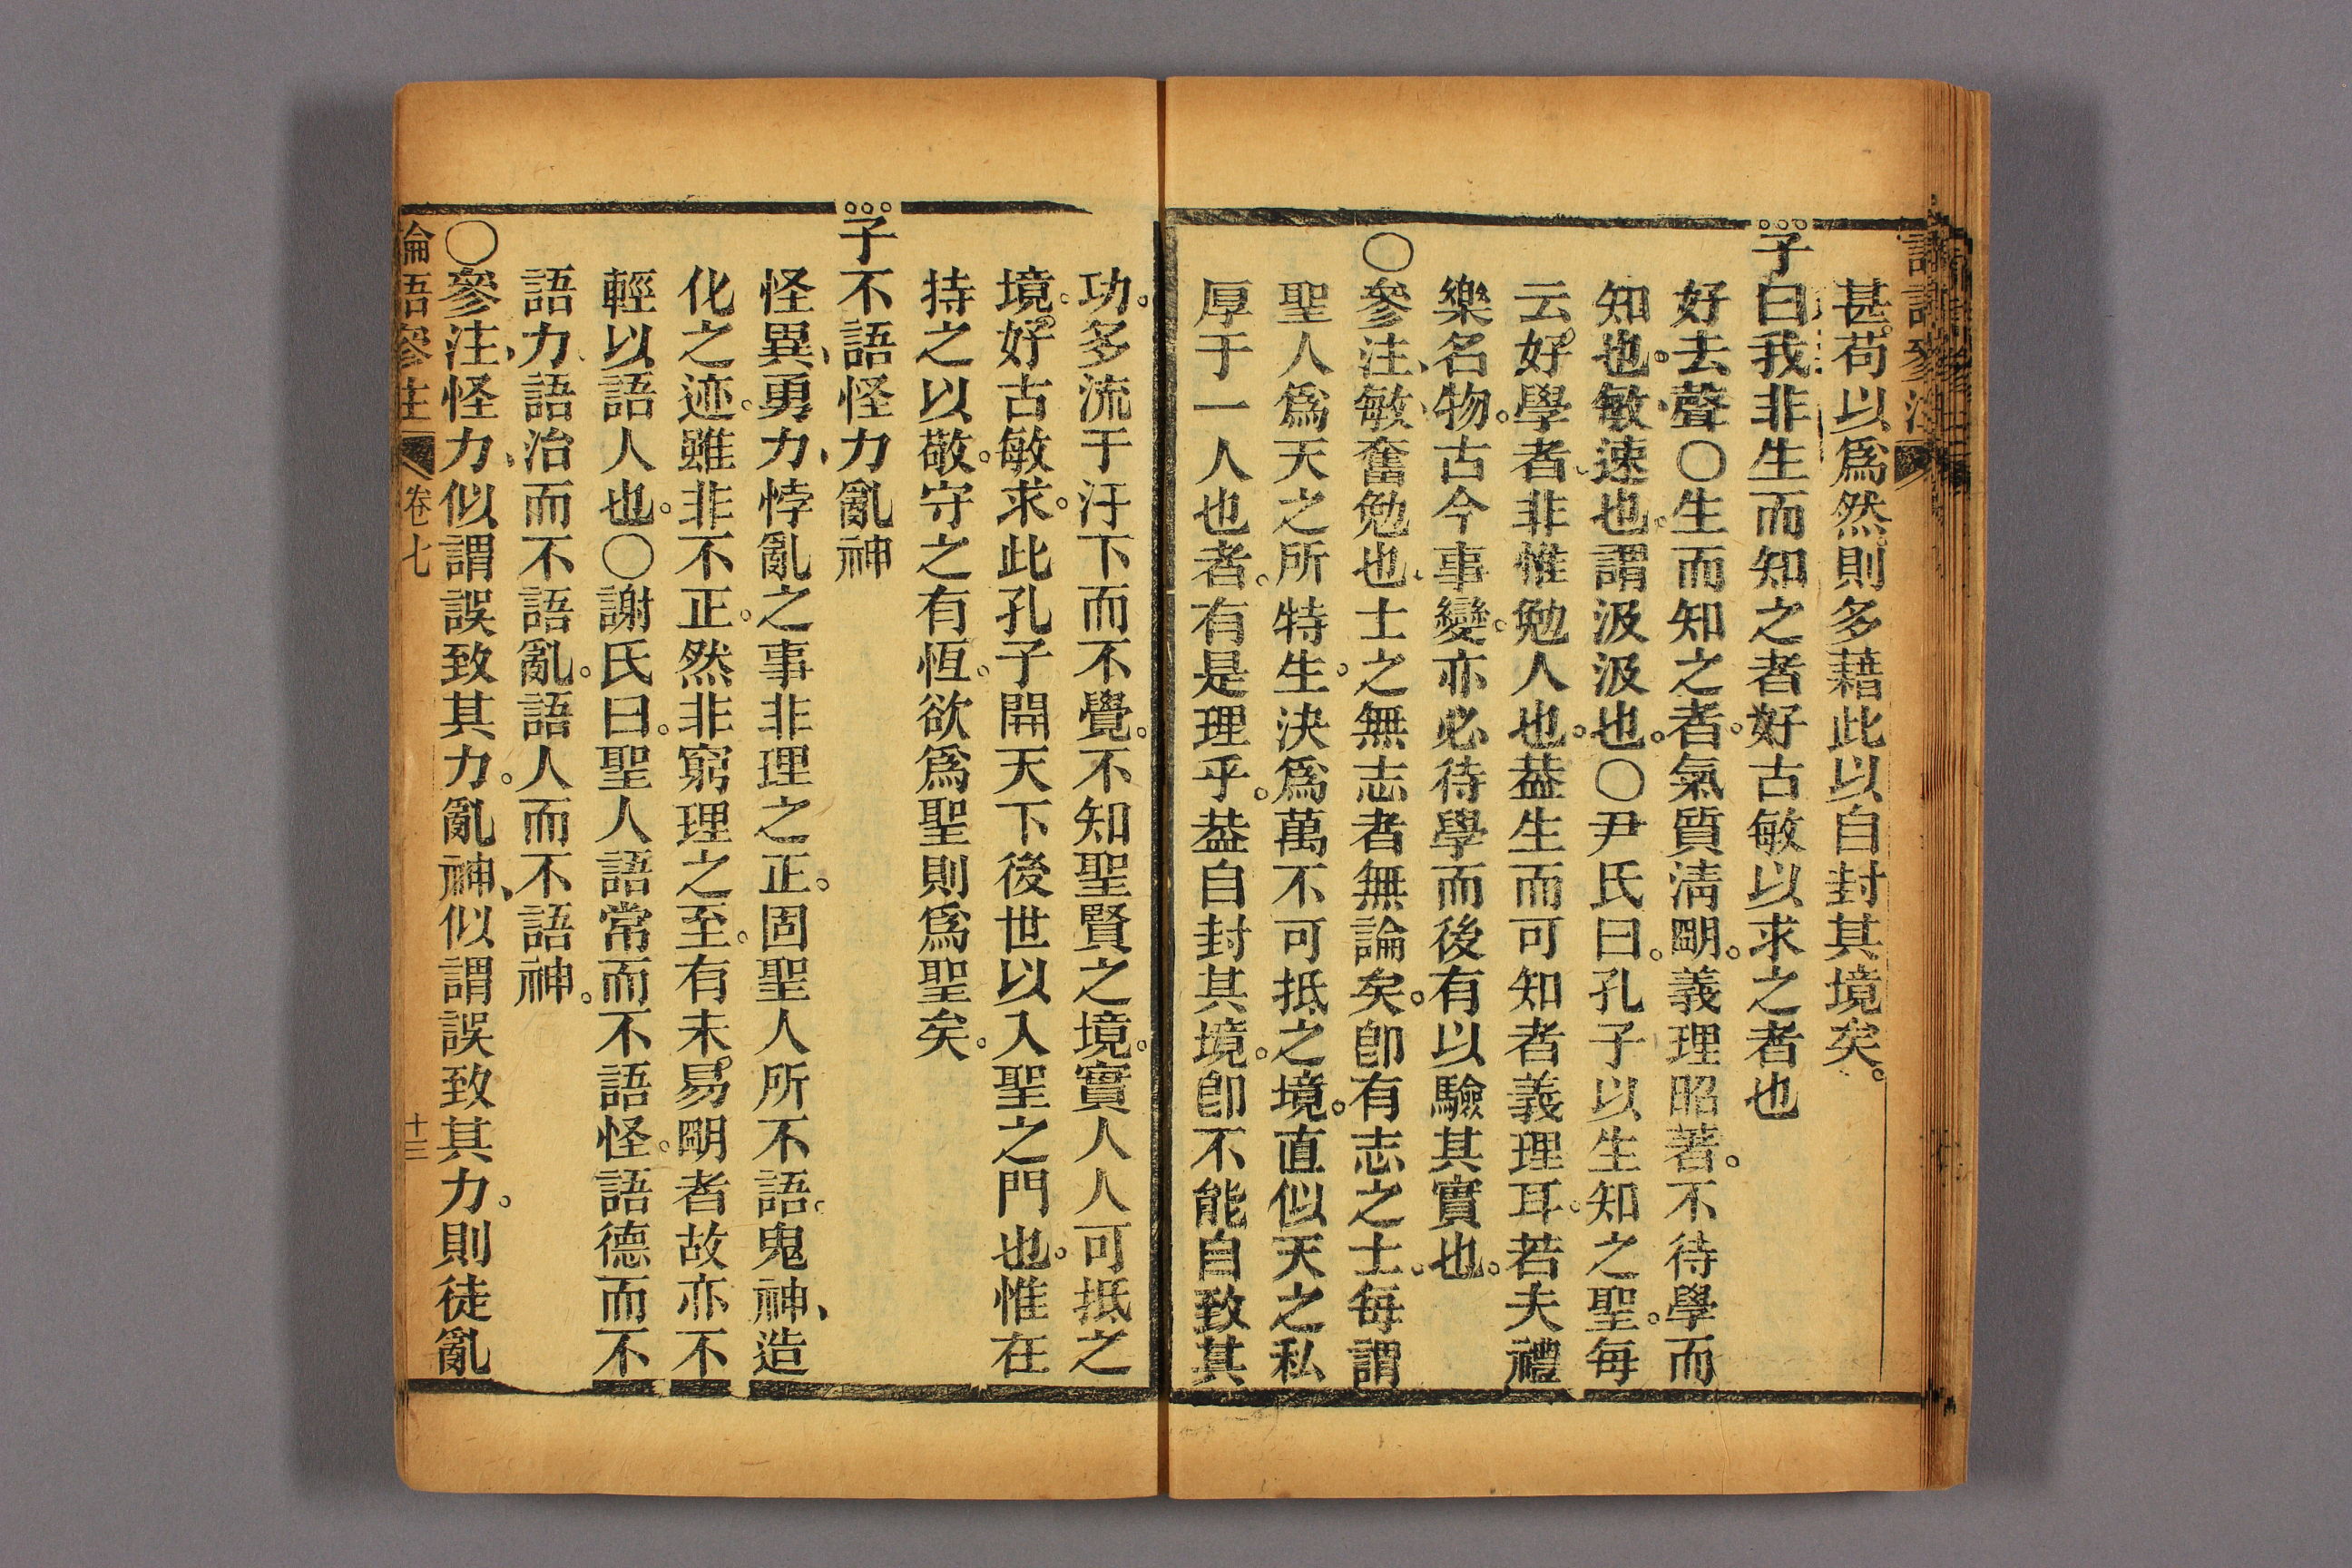 甚。苟以爲然。則多藉此以自封其境矣。
子曰我非生而知之者好古敏以求之者也
好去聲○生而知之者。氣質淸朙。義理昭著。不待學而
知也。敏、速也。謂汲汲也。○尹氏曰。孔子以生知之聖。每
云好學者、非惟勉人也。葢生而可知者義理耳。若夫禮
樂名物。古今事變。亦必待學而後有以驗其實也。
○參注、敏、奮勉也、士之無志者無論矣。卽有志之士。每謂
聖人爲天之所特生。決爲萬不可抵之境。直似天之私
厚于一人也者。有是理乎。葢自封其境。卽不能自致其
功。多流于汙下而不覺。不知聖賢之境。實人人可抵之
境。好古敏求。此孔子開天下後世以入聖之門也。惟在
持之以敬。守之有恆。欲爲聖則爲聖矣。
子不語怪力亂神
怪異、勇力、悖亂之事非理之正。固聖人所不語。鬼神、造
化之迹。雖非不正。然非窮理之至。有未易朙者故亦不
輕以語人也。○謝氏曰。聖人語常而不語怪。語德而不
語力、語治而不語亂。語人而不語神。
○參注、怪力、似謂誤致其力。亂神、似謂誤致其力。則徒亂
論語參注 卷七 十三